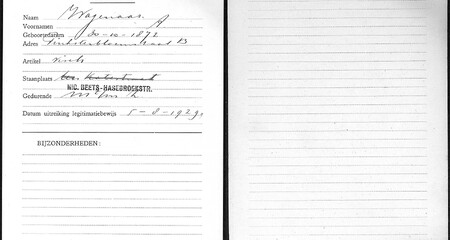 Naam Wagenaar. A
Voornamen
Geboortedatum 30-10-1872
Adres 13
Artikel visch
Staanplaats
NIC. BEETS-HASEBROEKSTR.
Gedurende
Datum uitreiking legitimatiebewijs 5-8-1929
BIJZONDERHEDEN: